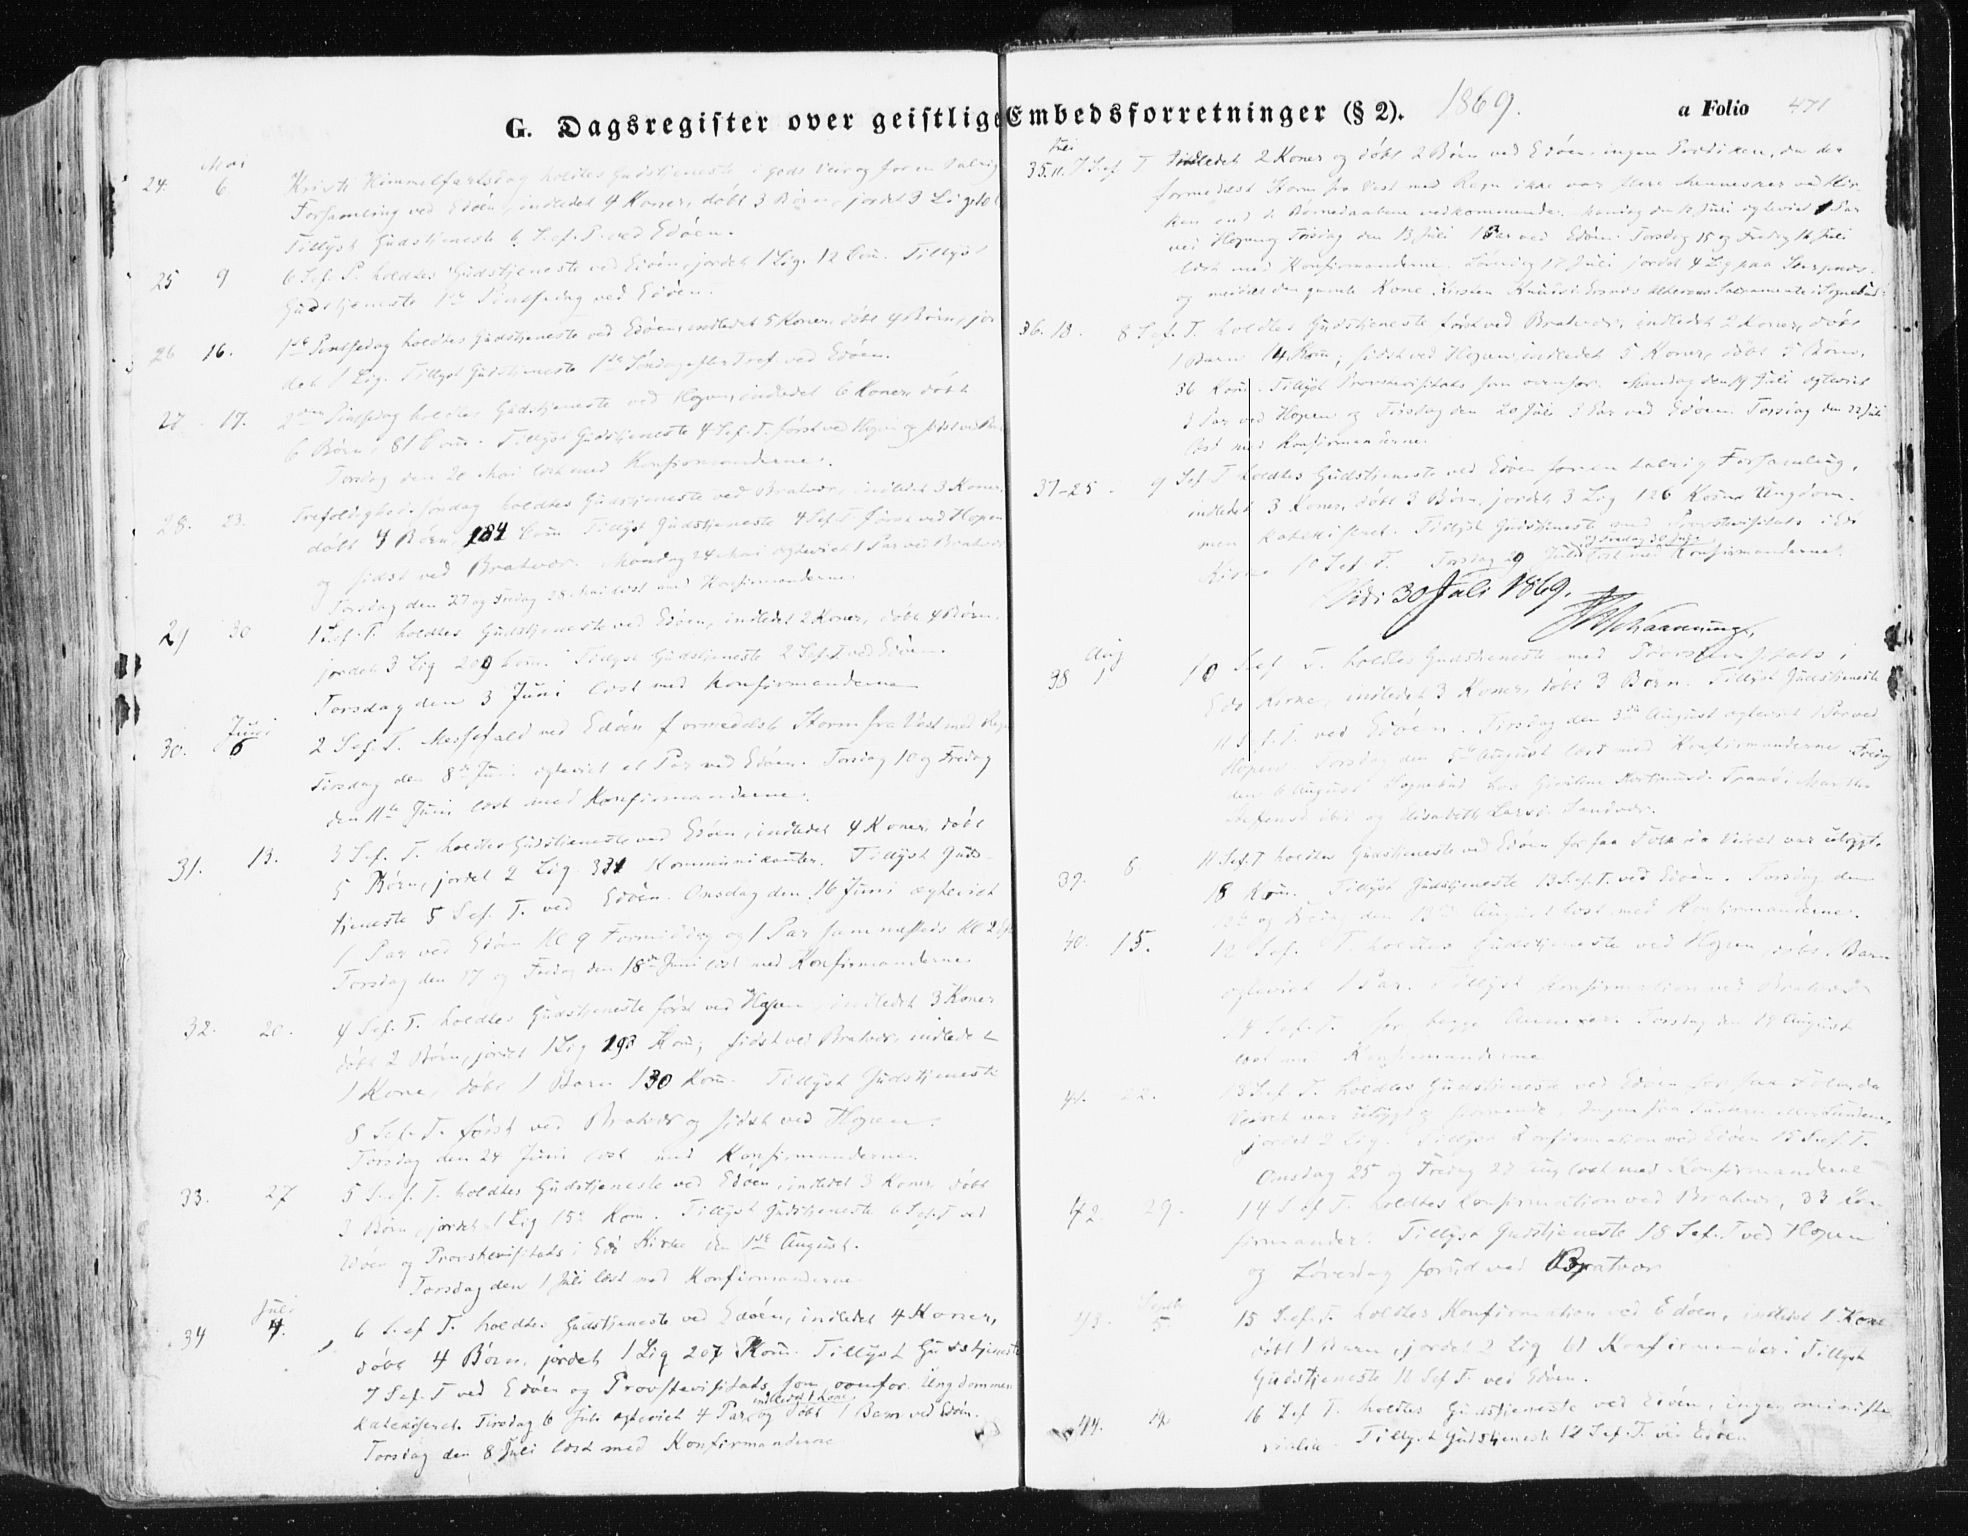 G. Dagsregister over geistlige Embedsforretninger (§ 2). 1869. a Folio 471
Mai
24. 6. Kristi Himmelfartsdag holdtes Gudstjeneste i godt Veir og for en talrig
Forsamling ved Edöen, indledet 4 Koner, döbt 3 Börn, jordet 3 Lig
Tillyst Gudstjeneste 6 S. ef. P. ved Edöen.
25 9 6 S. ef. P. holdtes Gudstjeneste ved Edöen, jordet 1 Lig. 12 Com. Tillyst
Gudstjeneste 1ste Pintsedag ved Edöen.
26 16. 1ste Pintsedag holdtes Gudstjeneste ved Edöen, indledet 5 Koner, döbt 4 Börn, jor
det 1 Lig. Tillyst Gudstjeneste 1ste Söndag efter Tref. ved Edöen.
27 17. 2den Pintsedag holdtes Gudstjeneste ved Hopen, indledet 6 Koner, döbt
6 Börn, 81 Com. Tillyst Gudstjeneste 4 S. ef. T. först ved Hopen og sidst ved
Torsdag den 20 Mai læst med Konfirmanderne.
28. 23. Trefoldigheds söndag holdtes Gudstjeneste ved Bratvær, indledet 3 Koner
döbt 4 Börn, 184 Com Tillyst Gudstjeneste 4 S. ef. T. först ved Hopen
og sidst ved Bratvær. Mandag 24 Mai ægteviet 1 Par ved Bratvær
Torsdag den 27 og Fredag 28 Mai læst med Konfirmanderne.
29 30 1 S. ef. T. holdtes Gudstjeneste ved Edöen, indledet 2 Koner, döbt 4 Börn,
jordet 3 Lig 209 Com. Tillyst Gudstjeneste 2 S. ef. T. ved Edöen.
Torsdag den 3 Juni læst med Konfirmanderne
Juni
30. 6 2 S. ef. T. Messefald ved Edöen formedelst Storm fra Vest med Regn
Tirsdag den 8de Juni ægteviet et Par ved Edöen. Torsdag 10 og Fredag
den 11te Juni læst med Konfirmanderne.
31. 13. 3 S. ef. T. holdtes Gudstjeneste ved Edöen, indledet 4 Koner, döbt
5 Börn, jordet 2 Lig 331 Kommunikanter. Tillyst Guds-
tjeneste 5 S. ef. T. ved Edöen. Onsdag den 16 Juni ægteviet
1 Par ved Edöen Kl 9 Formiddag og 1 Par sammesteds Kl 2
Torsdag den 17 og Fredag den 18de Juni læst med Konfirmanderne
32. 20. 4 S. ef. T. holdtes Gudstjeneste först ved Hopen, indledet 3 Koner
döbt 2 Börn, jordet 1 Lig 193 Kom; sidst ved Bratvær, indledet
1 Kone, döbt 1 Barn 130 Kom. Tillyst Gudstjeneste
8 S. ef. T. först ved Bratvær og sidst ved Hopen.
Torsdag den 24 Juni læst med Konfirmanderne.
33. 27 5 S. ef. T. holdtes Gudstjeneste ved Edöen, indledet 3 Koner, döbt
3 Börn, jordet 1 Lig 15 Kom. Tillyst Gudstjeneste 6 S. ef. T. ved
Edöen og Provstevisitats i Edö Kirke den 1ste August.
Torsdag den 1 Juli læst med Konfirmanderne
Juli
34 4. 6 S. ef. T. holdtes Gudstjeneste ved Edöen, indledet 4 Koner,
döbt 4 Börn, jordet 1 Lig 207 Kom. Tillyst Gudstjeneste
7 S. ef. T. ved Edöen og Provstevisitats som ovenfor. Ungdommen
katekiseret. Tirsdag 6 Juli ægteviet 4 Par, og indledet 1 Kone, döbt 1 Barn ved Edöen.
Torsdag den 8 Juli læst med Konfirmanderne
Juli
35. 11. 7 S. ef. T indledet 2 Koner og döbt 2 Börn ved Edöen, ingen Prædiken, da der
formedelst Storm fra Vest med Regn ikke var flere Mennesker ved Kir
ken end de Barnedaabene vedkommende. Mandag den 12 Juli ægteviet 1 Par
ved Hopen, Tirsdag den 13 Juli 1 Par ved Edöen. Torsdag 15 og Fredag 16 Juli
læst med Konfirmanderne. Löverdag 17 Juli jordet 4 Lig paa
og meddelt den gamle Kone Kirsten Knudsd. Alterens Sacramente i Sognebud.
36. 18. 8 S. ef. T. holdtes Gudstjeneste först ved Bratvær, indledet 2 Koner, döbt
1 Barn 14 Kom; sidst ved Hopen, indledet 5 Koner, döbt 5 Börn,
36 Kom. Tillyst Provstevisitats som ovenfor. Mandag den 19 Juli ægteviet
3 Par ved Hopen og Tirsdag den 20 Juli 3 Par ved Edöen. Torsdag den 22 Juli
læst med Konfirmanderne.
37-25. 9 S. ef. T. holdtes Gudstjeneste ved Edöen for en talrig Forsamling,
indledet 3 Koner, döbt 3 Börn, jordet 3 Lig 126 Kom Ungdom-
men katekiseret. Tillyst Gudstjeneste med Provstevisitats i Edö
Kirke 10 S. ef. T. Torsdag 29 og Fredag 30 Juli læst med Konfirmanderne.
Vidi 30 Juli 1869.
Schaanning.
Aug
38 1 10 S. ef. T. holdtes Gudstjeneste med Provstevisitats i
Edö Kirke, indledet 3 Koner, döbt 3 Börn. Tillyst Gudstjeneste
11 S. ef. T. ved Edöen. Tirsdag den 3die August ægteviet 1 Par ved
Hopen. Torsdag den 5te August læst med Konfirmanderne Fredag
den 6 August Sognebud hos Martinusd. Marthe
Steffensd. og Elisabeth Larsd. Sandvær.
39. 8. 11 S. ef. T holdtes Gudstjeneste ved Edöen for faa Folk da Veiret var utrygt.
18 Kom. Tillyst Gudstjeneste 13 S. ef. T. ved Edöen. Torsdag den
12te og Fredag den 13de August læst med Konfirmanderne.
40. 15. 12 S. ef. T. holdtes Gudstjeneste ved Hopen, döbt 1 Barn
ægteviet 1 Par. Tillyst Konfirmation ved Bratvær
14 S. ef. T. for begge Annexer. Torsdag den 19 August
læst med Konfirmanderne
41. 22. 13 S. ef. T. holdtes Gudstjeneste ved Edöen for faa Folk, da
Veiret var utrygt og stormende. Ingen fra Tustern eller
jordet 2 Lig. Tillyst Konfirmation ved Edöen 15 S. ef. T.
Onsdag 25 og Fredag 27 Aug læst med Konfirmanderne
42. 29. 14 S. ef. T. holdtes Konfirmation ved Bratvær, 33 Kon
firmander. Tillyst Gudstjeneste 18 S. ef. T ved Hopen
og Löverdag forud ved Bratvær
Septbr
43. 5 15 S. ef. T. holdtes Konfirmation ved Edöen, indledet 1 Kone
döbt 1 Barn, jordet 2 Lig 61 Konfirmander. Tillyst
Gudstjeneste 16 S. ef. T. ved Edöen.
44. 12 16 S. ef. T. holdtes Gudstjeneste ved Edöen, ingen ministe
rialia. Tillyst Gudstjeneste 17 S. ef. T. ved Edöen